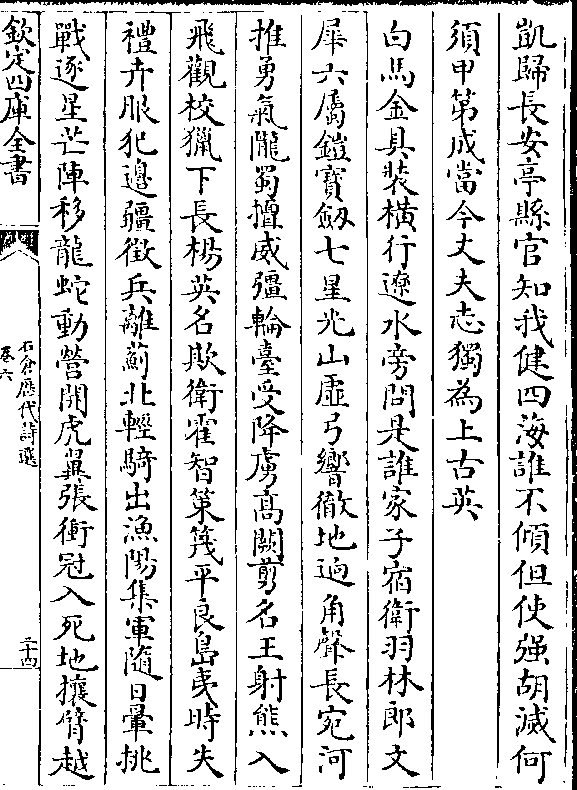 凱歸長安亭縣官知我健四海誰不傾但使强胡滅何
須甲第成當今丈夫志獨為上古英
白馬金具裝横行遼水旁問是誰家子宿衛羽林郎文
犀六屬鎧寳劒七星光山虚弓響徹地逈角聲長宛河
推勇氣隴蜀擅威彊輪臺受降虜髙闕剪名王射熊入
飛觀校獵下長楊英名欺衛霍智策蔑平良島夷時失
禮卉服犯邊疆徴兵離薊北輕騎出漁陽集軍隨日暈挑
戰逐星芒陣移龍蛇動營開虎翼張衝冠入死地攘臂越
欽定四庫全書
石倉歷代詩選
卷六
二十四